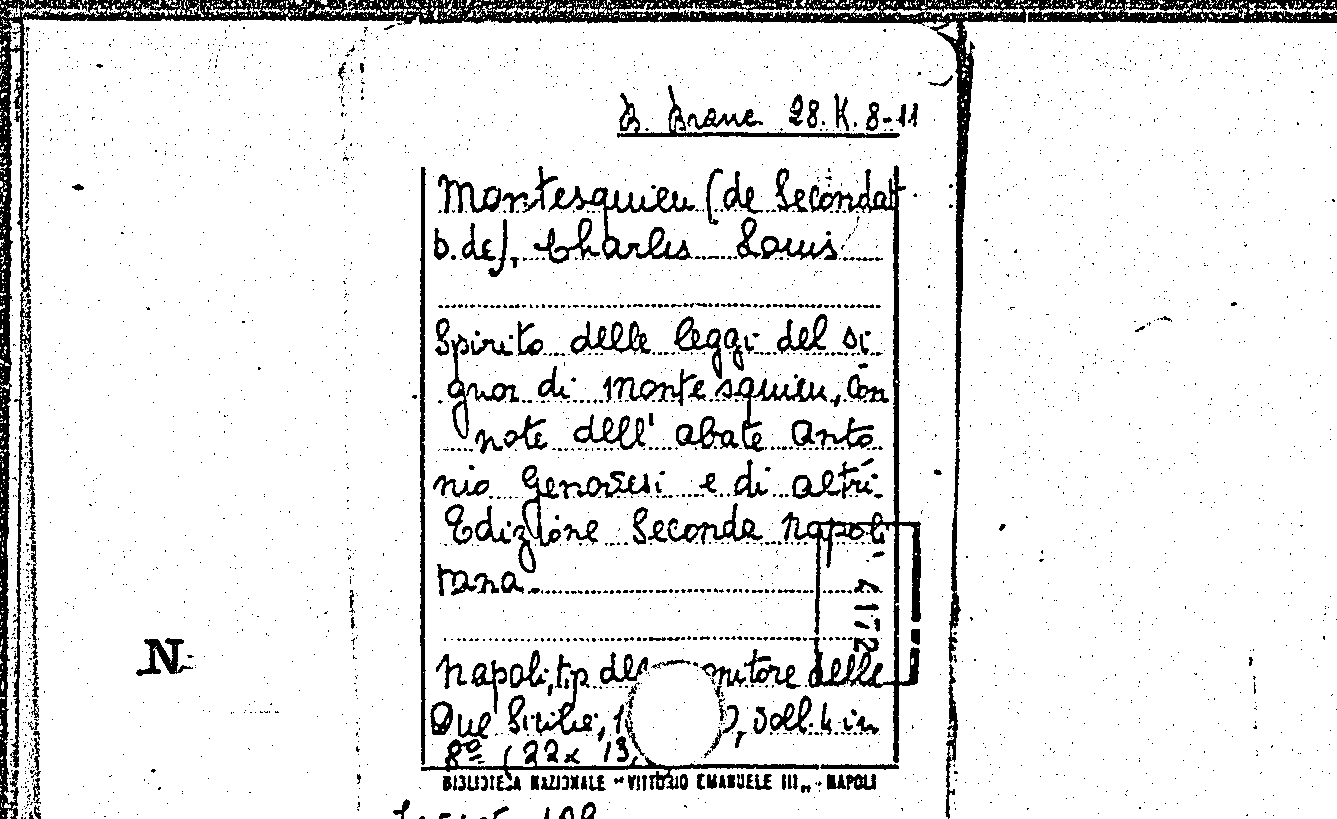 B. Branc. 28. K. 8-11
Montesquieu (de Secondat
b. de), Charles Louis
Spirito delle leggi del si
gnor di Montesquieu, con
note dell' abate Anto
nio Genovesi e di altri.
Edizione Seconda Napoli
tana.
4172
Napoli, tip. del nitore delle
Due Sicilie, 1 ), voll. 4 in
8º (22 x 13,
BIBLIOTECA NAZIONALE "VITTORIO EMANUELE III" - NAPOLI
N